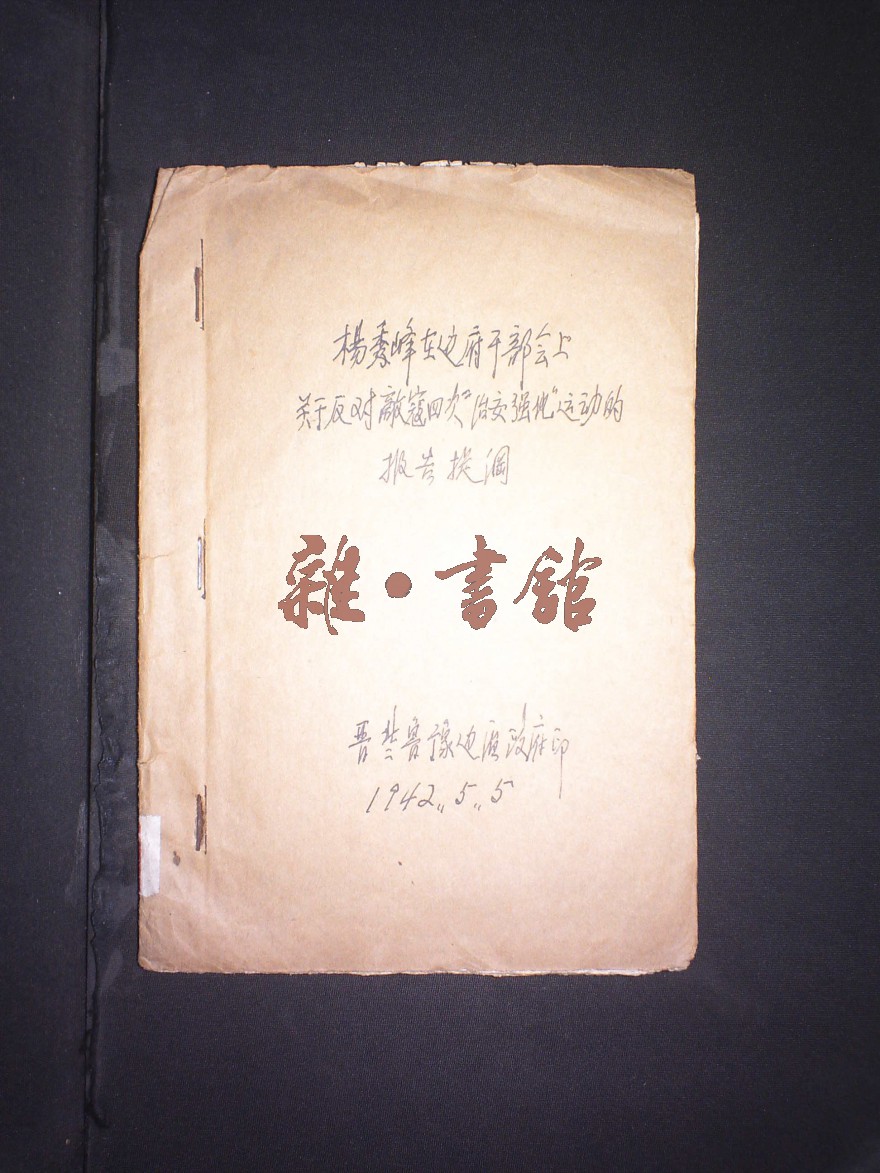 杨秀峰在边府干部会上
关于反对敵寇四次"治安强化"运动的
报告提綱
雜·書館
晋冀鲁豫边区政府印
1942.5.5